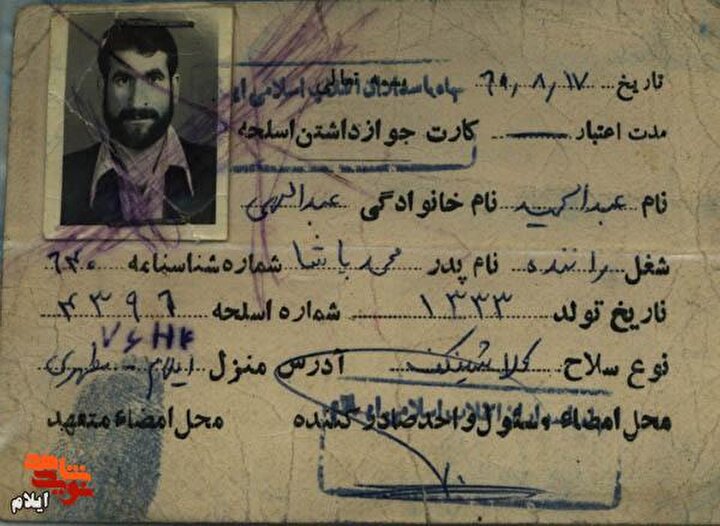 تاریخ ۶۰٫۸٫۱۷
مدت اعتبار کارت جواز داشتن اسلحه
نام عبدالحمید نام خانوادگی عبداللهی
شغل راننده نام پدر محمد باشا شماره شناسنامه ۶۳۰
تاریخ تولد ۱۳۳۳ شماره اسلحه ۴۳۹۶
نوع سلاح کلاشینکف آدرس منزل ایلام - مطهری
محل امضاء مسئول واحد صادر کننده محل امضاء متعهد
ایلام